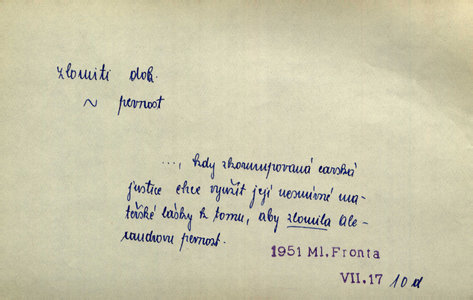 zlomiti dok.
~ pevnost
..., kdy zkorumpovaná carská
justice chce využít její nesmírné ma-
teřské lásky k tomu, aby zlomila Ale-
xandrovu pevnost.
1951 Ml. Fronta
VII. 17 10 d